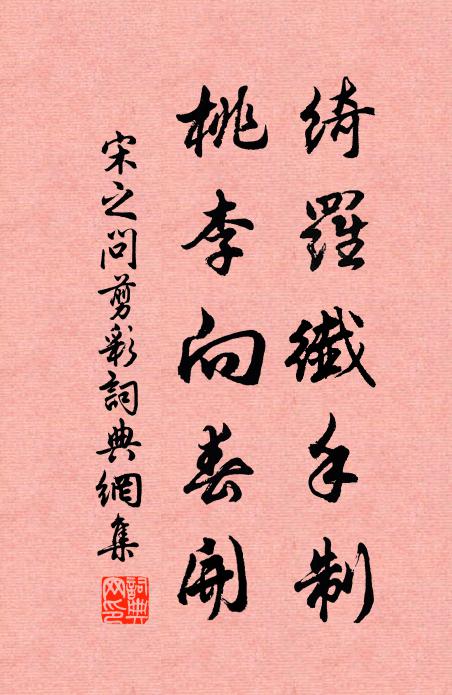 綺羅纖手制
桃李向春開
宋之問剪彩詞典網集
詞典网印